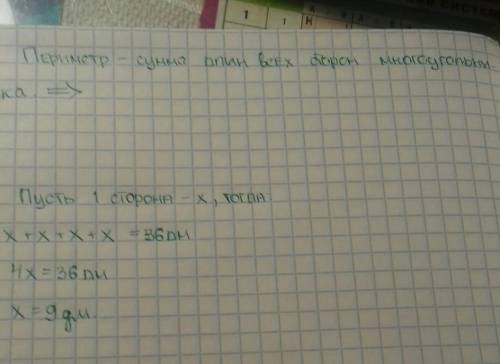 1 1 Н
Периметр - сумма длин всех сторон многоугольни-
ка. =>
Пусть 1 сторона - x, тогда:
x + x + x + x = 36дм
4x = 36дм
x = 9дм.